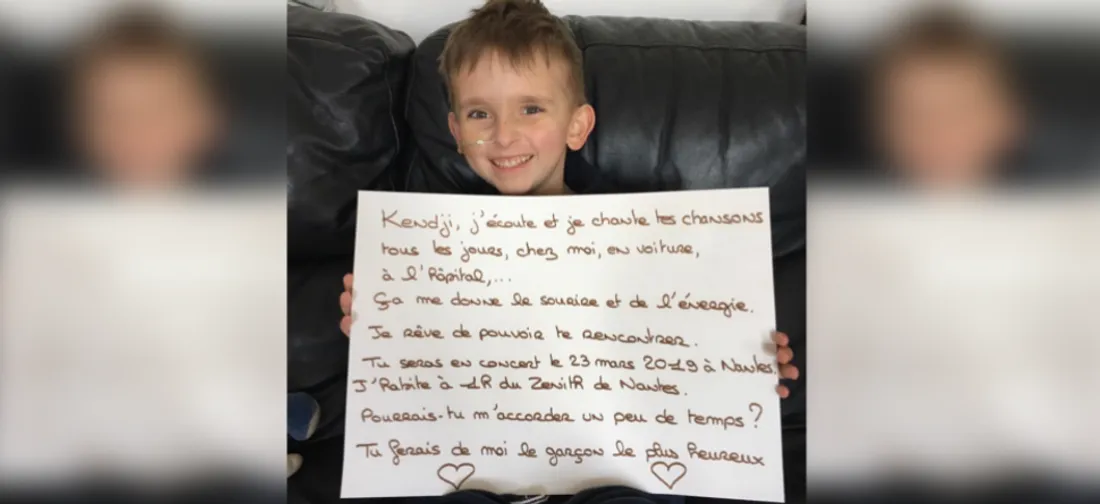 Kendji, j'écoute et je chante tes chansons
tous les jours, chez moi, en voiture,
à l'hôpital,...
Ça me donne le sourire et de l'énergie.
Je rêve de pouvoir te rencontrer.
Tu seras en concert le 23 mars 2019 à Nantes.
J'habite à 1h du Zenith de Nantes.
Pourrais-tu m'accorder un peu de temps ?
Tu ferais de moi le garçon le plus heureux